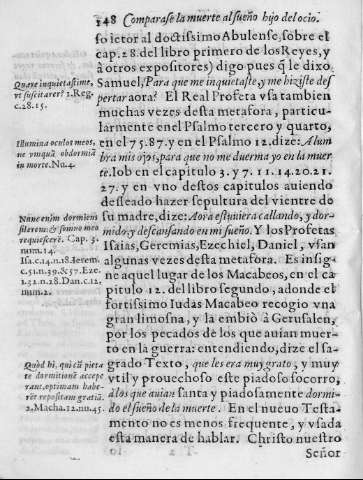 148 Comparase la muerte al sueño hijo del ocio.
so letor al doctissimo Abulense, sobre el
cap. 28. del libro primero de los Reyes, y
à otros expositores) digo pues q̃ le dixo
Samuel, Para que me inquietaste, y me hiziste des
pertar aora? El Real Profeta vsa tambien
muchas vezes desta metafora, particu-
larmente en el Psalmo tercero y quarto,
en el 75. 87. y en el Psalmo 12. dize: Alum
bra mis ojos, para que no me duerma yo en la muer
te. Iob en el capitulo 3. y 7. 11. 14. 20. 21.
27. y en vno destos capitulos auiendo
desseado hazer sepultura del vientre de
su madre, dize: Aora estuuiera callando, y dor-
mido, y descansando en mi sueño. Y los Profetas
Isaias, Geremias, Ezechiel, Daniel, vsan
algunas vezes desta metafora. Es insig-
ne aquel lugar de los Macabeos, en el ca
pitulo 12. del libro segundo, adonde el
fortissimo Iudas Macabeo recogio vna
gran limosna, y la embiò à Gerusalen,
por los pecados de los que auian muer-
to en la guerra: entendiendo, dize el sa-
grado Texto, que les era muy grato, y muy
vtil y prouechoso este piadoso socorro,
à los que auian santa y piadosamente dormi-
do el sueño de la muerte. En el nueuo Testa-
mento no es menos frequente, y vsada
esta manera de hablar. Christo nuestro
Señor
Quare inquietastime,
vt suscitarer? 1. Reg.
c. 28. 15.
Illumina oculos meos,
ne vnquã obdormiã
in morte. Nu. 4.
Nunc enim dormiens
silerem: & somno meo
requiescerẽ. Cap. 3.
num. 14.
Isa. c. 14. n. 18. Ierem.
c. 51. n. 39. & 57. Eze.
c. 32. n. 28. Dan. c. 12.
num. 2.
Quòd hi, qui cũ pieta
te dormitionẽ accepe
rant, optimam habe-
rẽt repositam gratiã.
2. Macha. 12. nu. 45.